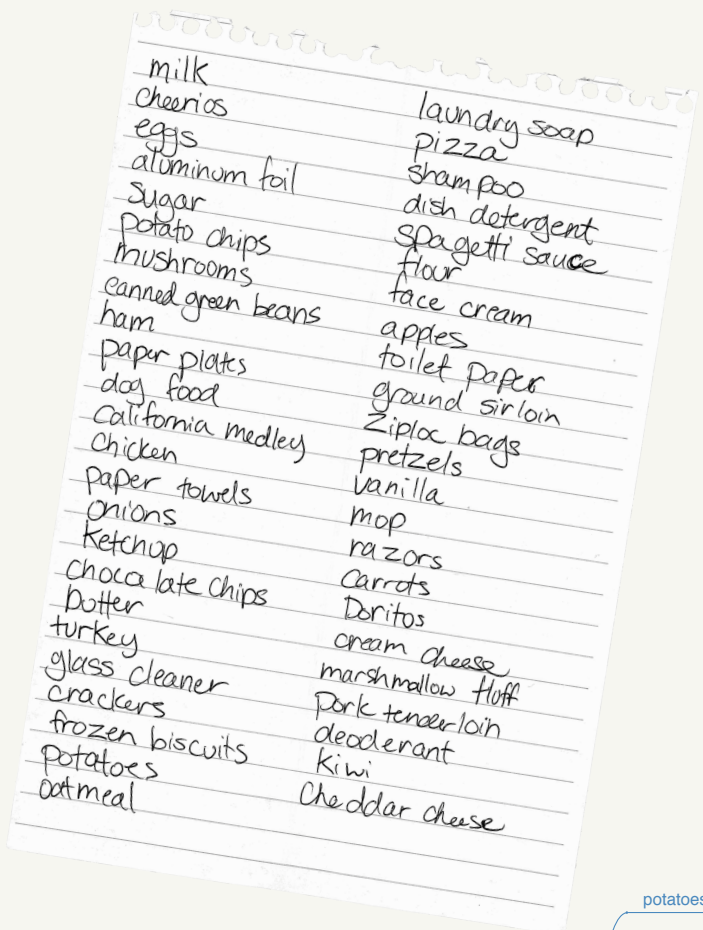 milk
cheerios
eggs
aluminum foil
sugar
potato chips
mushrooms
canned green beans
ham
paper plates
dog food
california medley
chicken
paper towels
onions
ketchup
choca late chips
butter
turkey
glass cleaner
crackers
frozen biscuits
potatoes
oatmeal
laundry soap
pizza
shampoo
dish detergent
spagetti sauce
flour
face cream
apples
toilet paper
ground sirloin
Ziploc bags
pretzels
vanilla
mop
razors
carrots
Doritos
cream cheese
marshmallow fluff
pork tenderloin
deoderant
kiwi
Cheddar cheese
potatoes